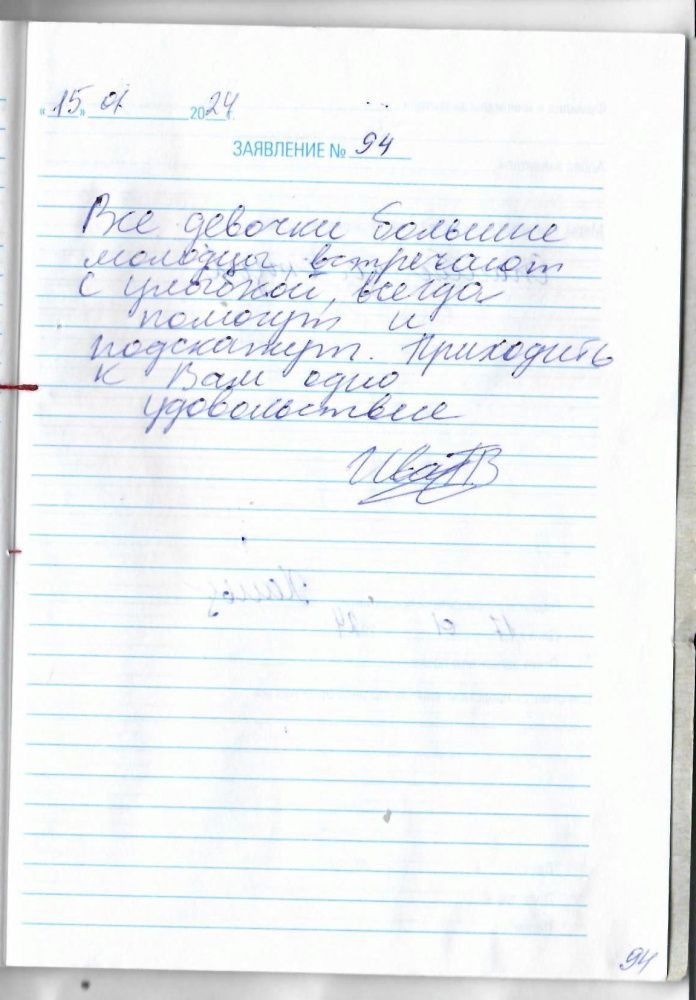 «15» 01 2024г.
ЗАЯВЛЕНИЕ № 94
Все девочки большие
молодцы встречают
с улыбкой, всегда
помогут и
подскажут. Приходить
к Вам одно
удовольствие
94